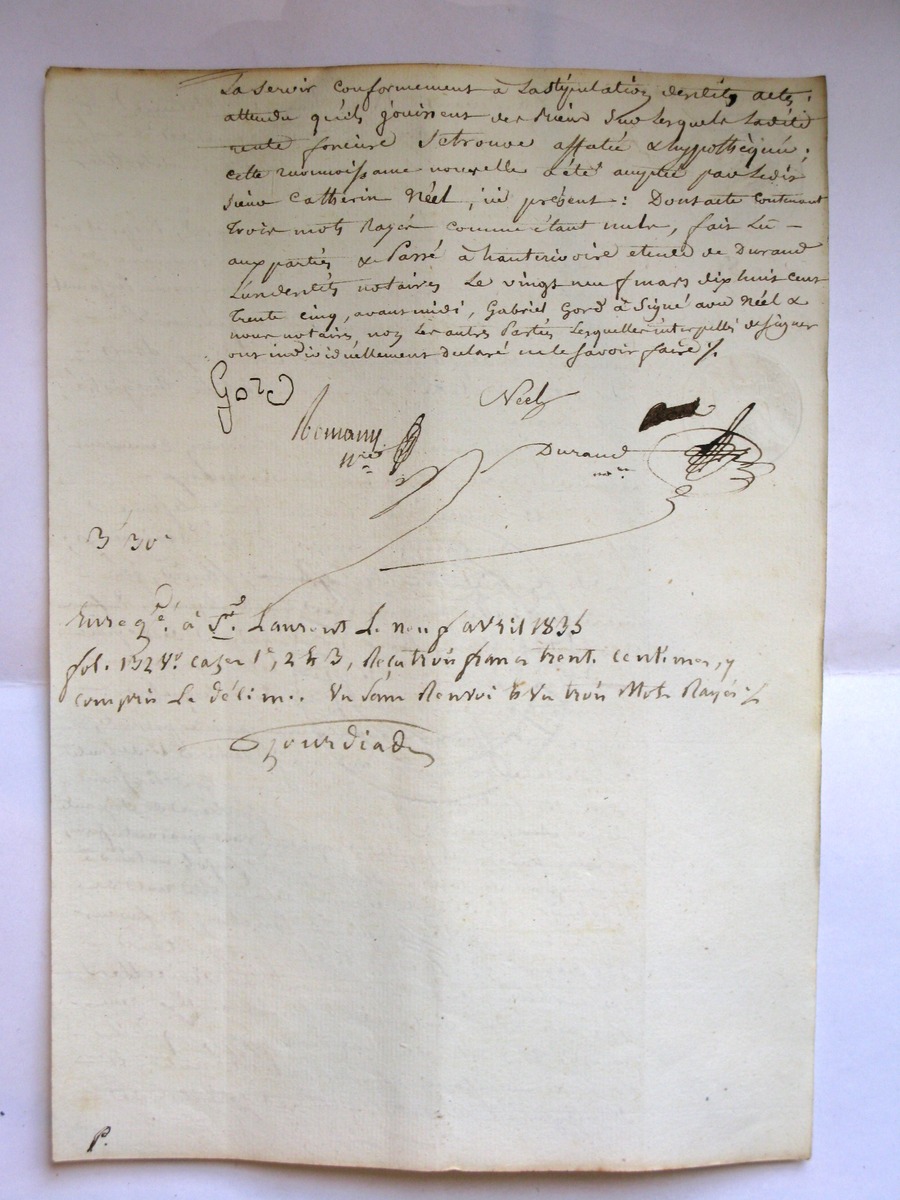 La servir conformement à la stipulation desdits actes,
attendu qu'ils jouissent des biens sur lesquels ladite
rente foncière se trouve affectée & hypothéquée;
cette reconnoissance nouvelle a été acceptée par ledit
sieur Catherin Néel, ici présent: Dont acte contenant
trois mots Rayés comme étant nuls, fait Lu
aux parties & Passé à hauterivoire etude de Durand
L'un desdits notaires Le vingt neuf mars dix huit cent
trente cinq, avant midi, Gabriel Gord à Signé avec Néel &
nous notaires, non les autres Parties Lesquelles interpellés de signer
ont individuellement declaré ne le savoir faire ⁒.
Gord
Neel
nre
Durand
nore
3f 30c
Enregé. à St. Laurent Le neuf avril 1835
fol. 132 Vo. cazes 1re, 2 & 3, Reçu trois francs trente centimes, y
compris Le décime. Vu sans Renvoi & Vu trois Mots Rayés ⁒
P.